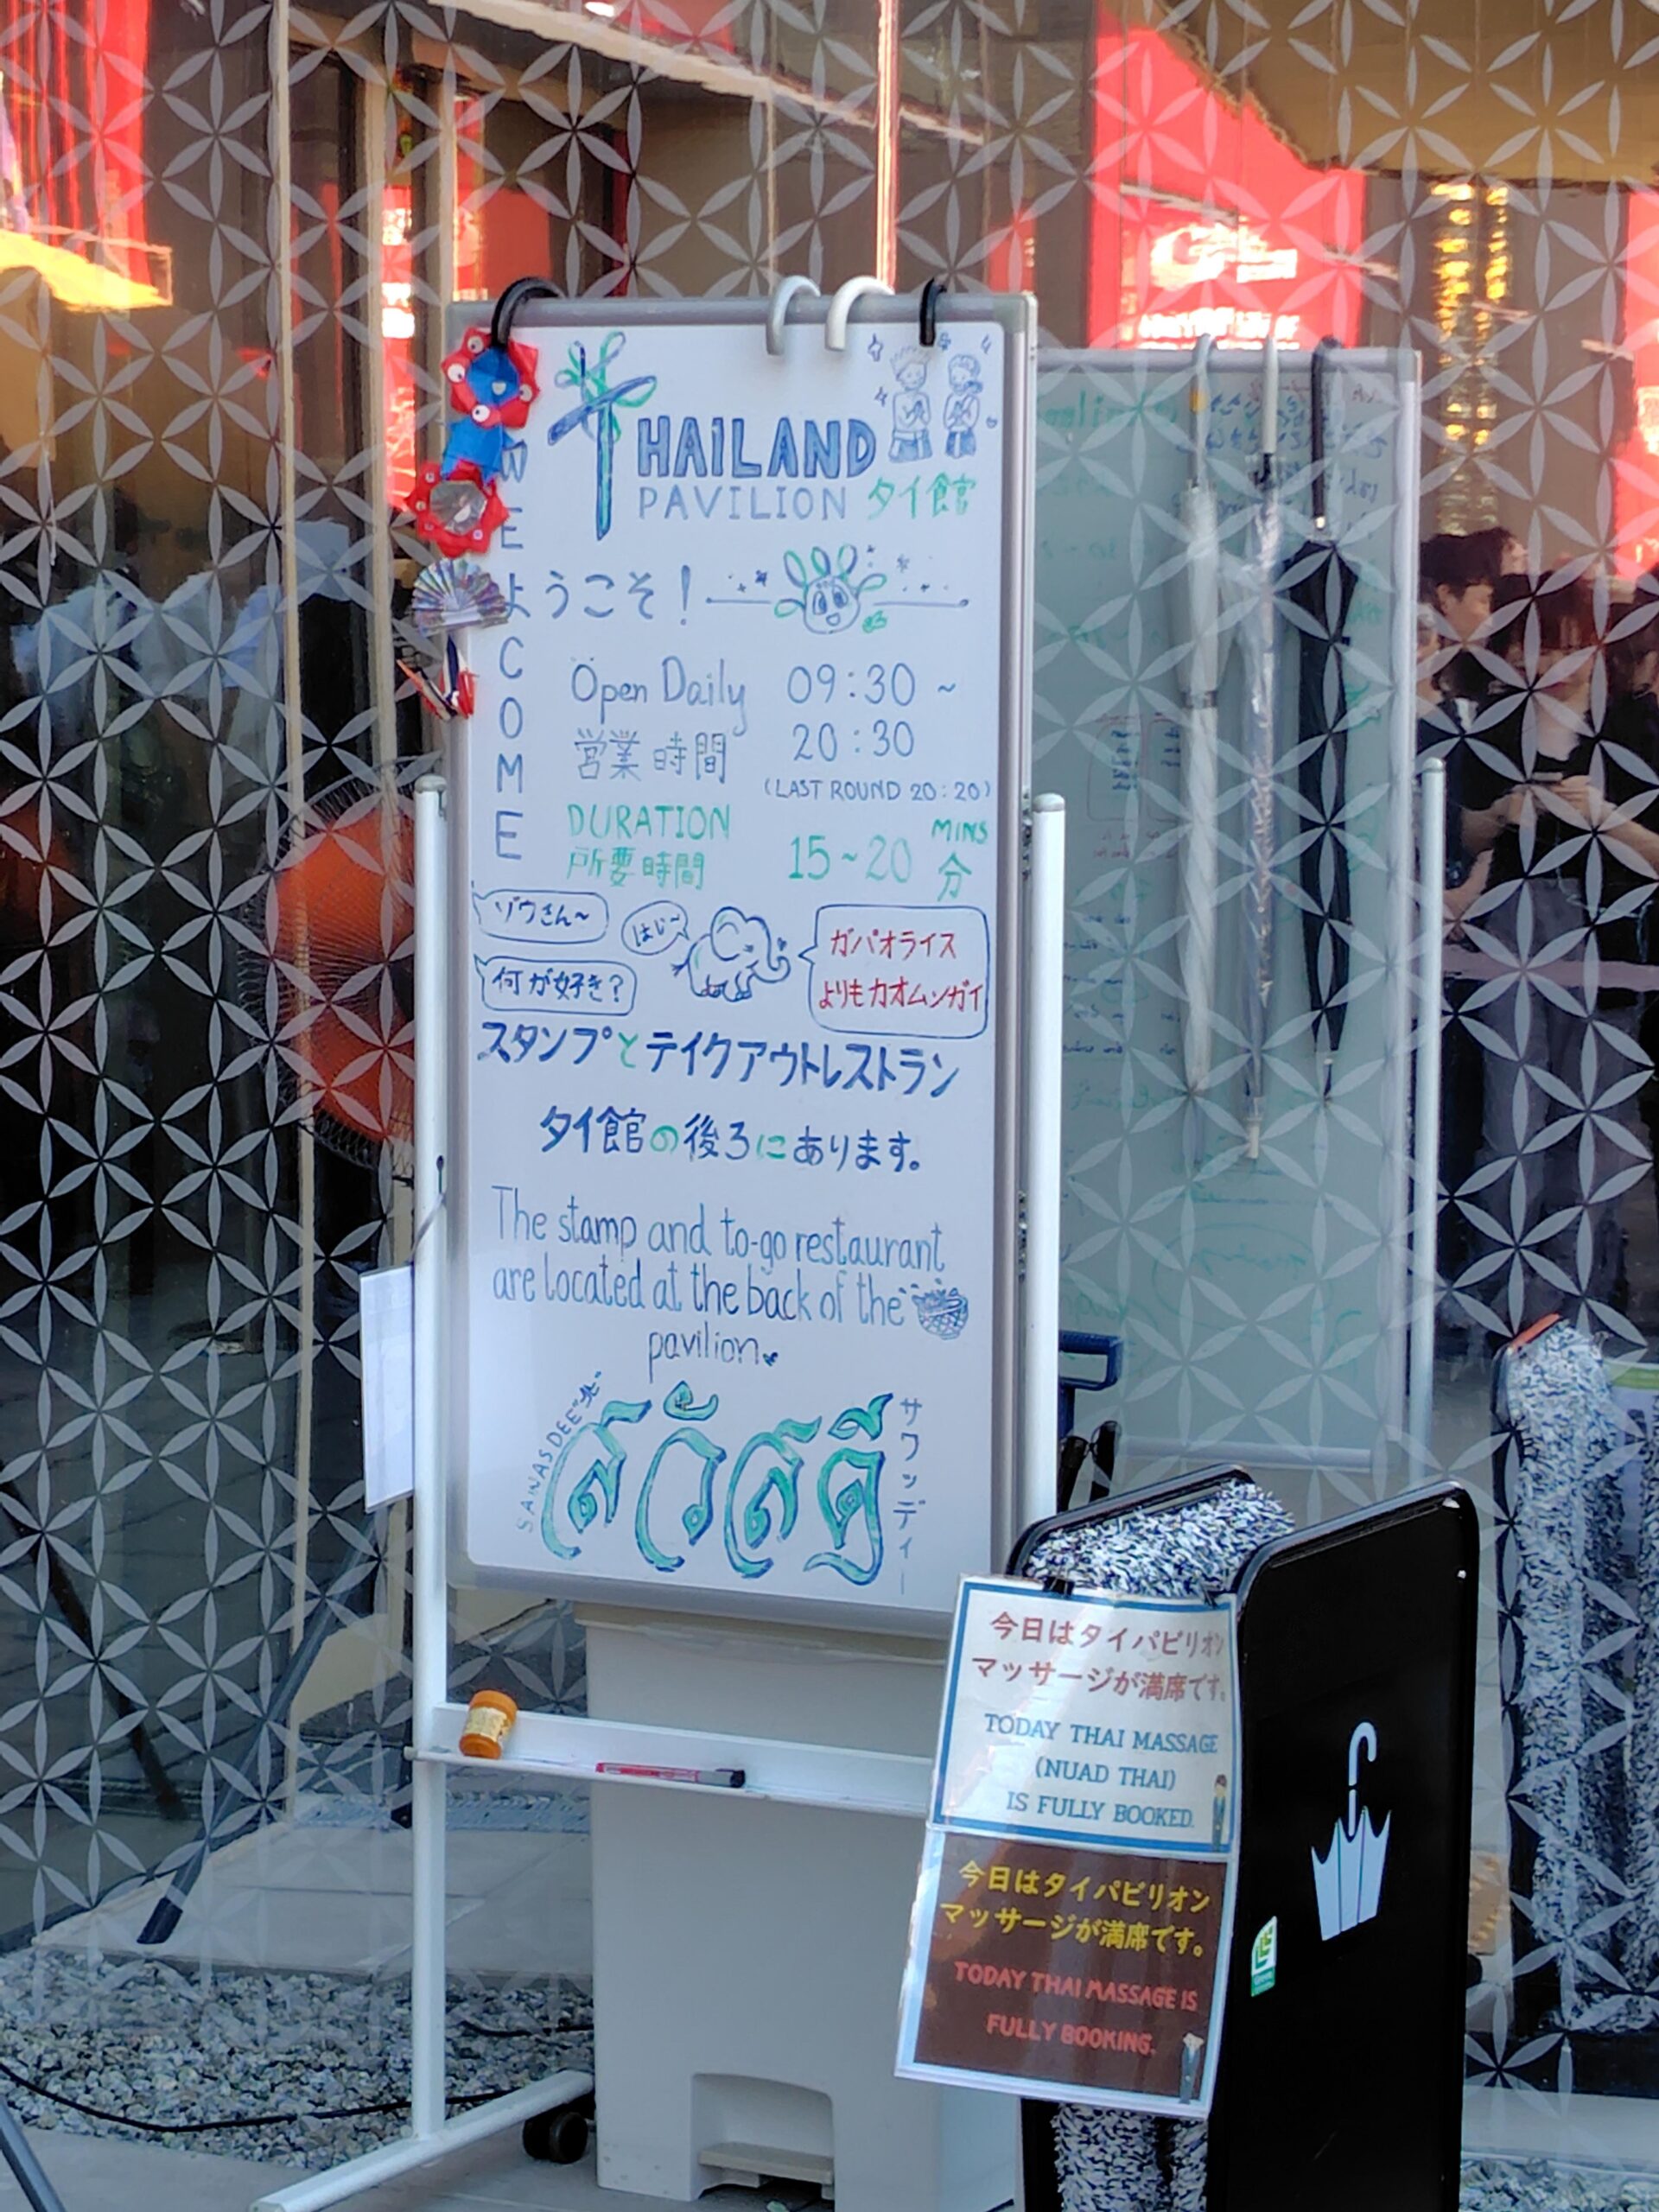 THAILAND
PAVILION タイ館
WELCOME
ようこそ!
Open Daily 09:30 ~
営業時間 20:30
(LAST ROUND 20:20)
DURATION 15~20 MINS
所要時間 分
ゾウさん~
はい~
何が好き?
ガパオライス
よりもカオムンガイ
スタンプとテイクアウトレストラン
タイ館の後ろにあります。
The stamp and to-go restaurant
are located at the back of the
pavilion
SAWASDEE
สวัสดี
サワッディー
今日はタイパビリオン
マッサージが満席です。
TODAY THAI MASSAGE
(NUAD THAI)
IS FULLY BOOKED.
今日はタイパビリオン
マッサージが満席です。
TODAY THAI MASSAGE IS
FULLY BOOKING.